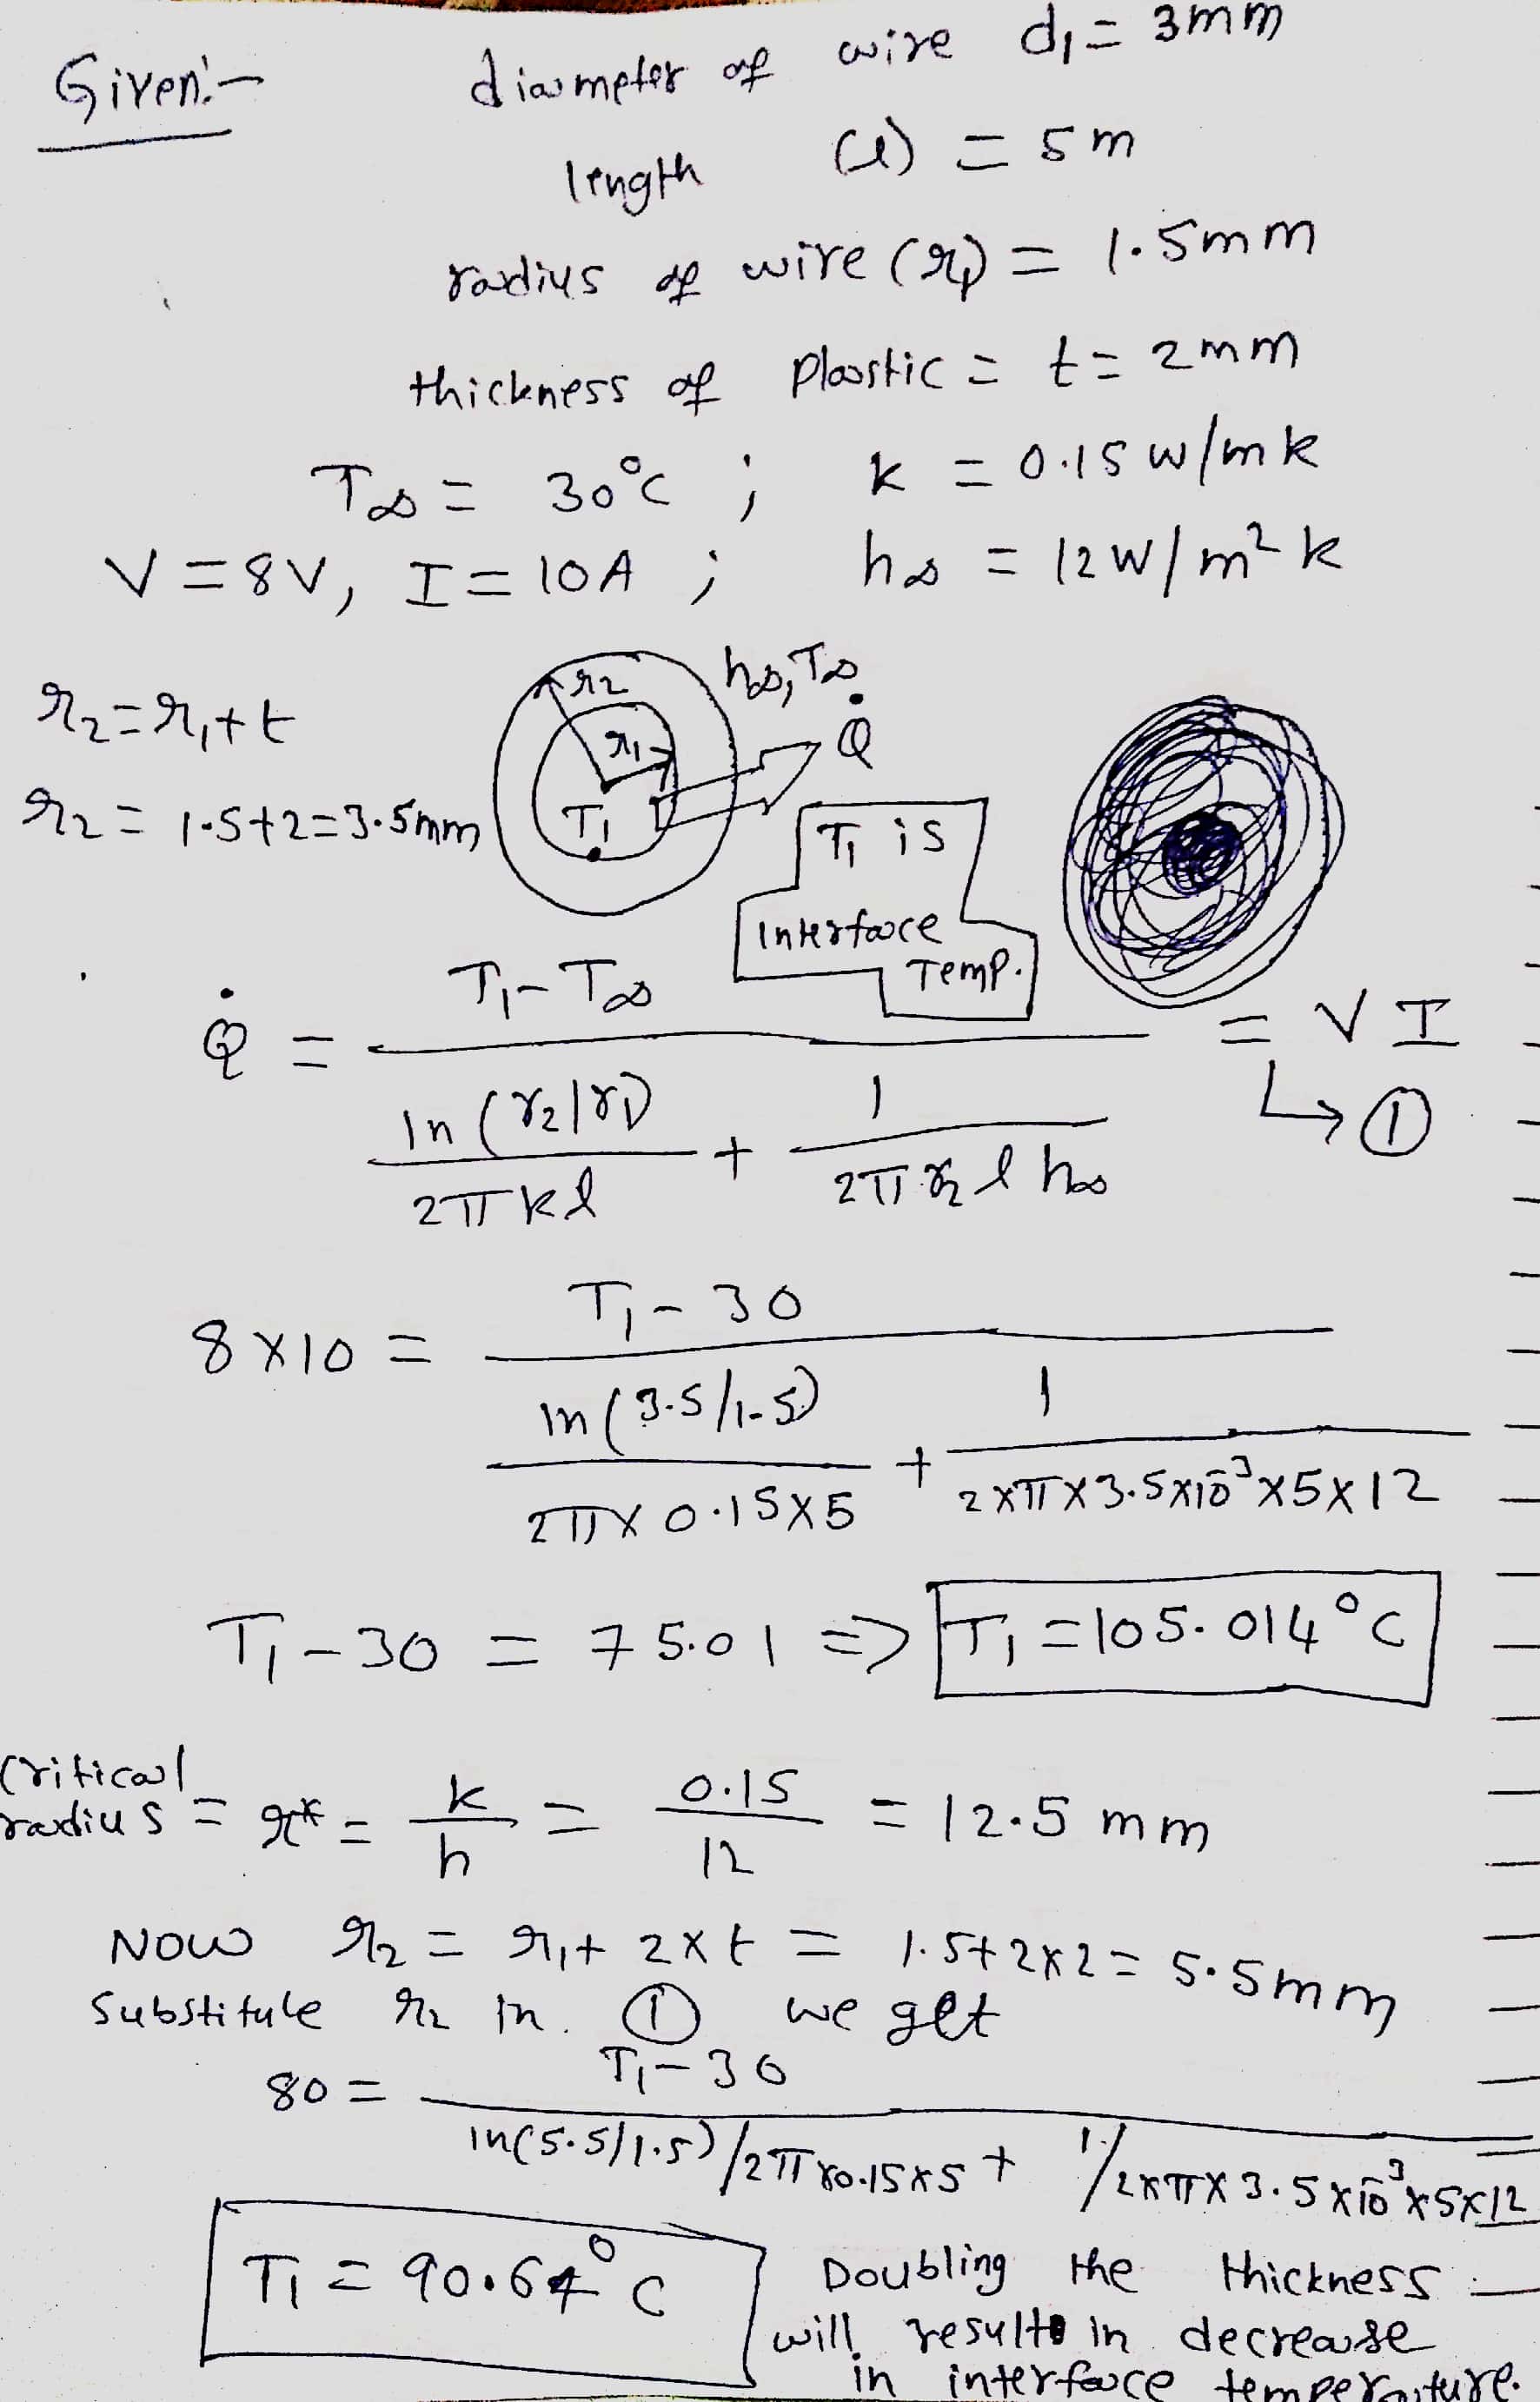 Given:- diameter of wire d₁ = 3mm
length (l) = 5m
radius of wire (r₁) = 1.5mm
thickness of plastic = t = 2mm
T∞ = 30°C ; k = 0.15 W/mk
V = 8V, I = 10A ; h∞ = 12W/m²k
r₂ = r₁ + t
r₂ = 1.5+2=3.5mm
r₂
r₁
T₁
h∞, T∞
Q̇
T₁ is
Interface
Temp.
Q̇ = (T₁ - T∞) / (ln(r₂/r₁)/2πkl + 1/2πr₂lh∞) = VI
↳ ①
8×10 = (T₁ - 30) / (ln(3.5/1.5)/2π×0.15×5 + 1/2×π×3.5×10⁻³×5×12)
T₁ - 30 = 75.01 => T₁ = 105.014°C
Critical
radius = r* = k/h = 0.15/12 = 12.5 mm
NOW r₂ = r₁ + 2×t = 1.5+2×2 = 5.5mm
Substitute r₂ in ① we get
80 = (T₁ - 30) / (ln(5.5/1.5)/2π×0.15×5 + 1/2×π×3.5×10⁻³×5×12)
T₁ = 90.64°C
Doubling the thickness
will results in decrease
in interface temperature.